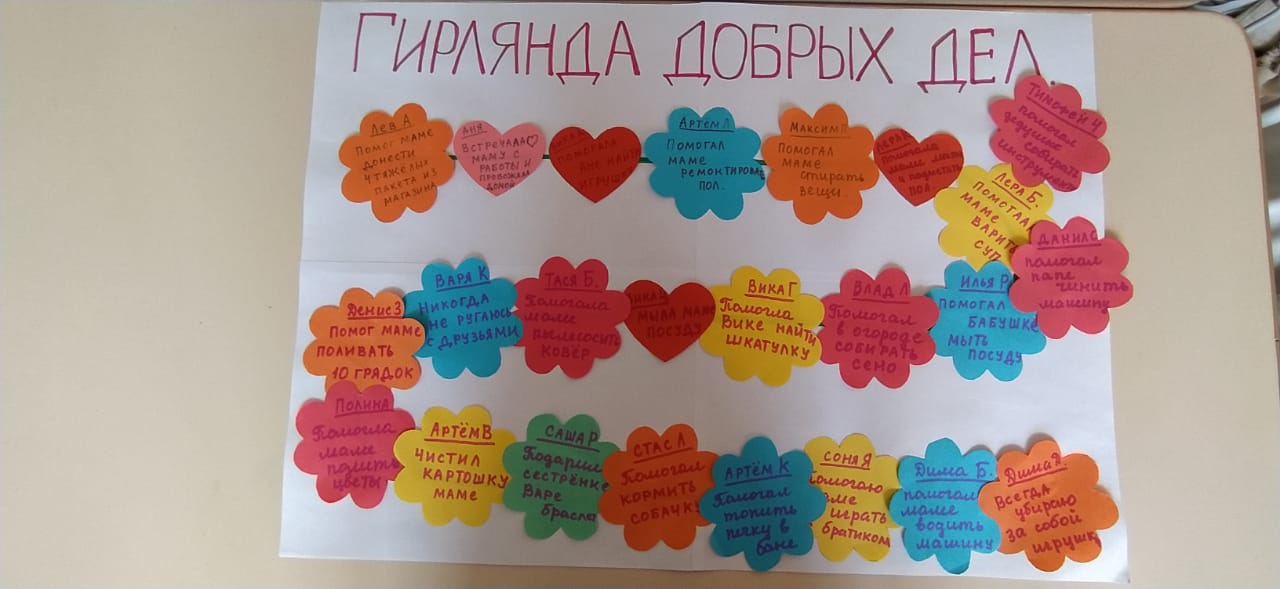 ГИРЛЯНДА ДОБРЫХ ДЕЛ.
Лев А
Помог маме
донести
4 тяжелых
пакета из
магазина
Аня
Встречала
маму с
работы и
провожала
домой
помогала
Ане найти
игруш
Артём Л
Помогал
маме
ремонтирова
пол.
Максим П
Помогал
маме
стирать
вещи.
Лера
Помогала
маме мыть
и подметать
пол.
Тимофей Ч
помогал
дедушке
собирать
инструмент
Лера Б.
маме
варить
суп
Данил С
помогал
папе
чинить
машину
Илья Р
помогал
бабушке
мыть
посуду
Влад Л
Помогал
в огороде
собирать
сено
Вика Г
Помогла
Вике найти
шкатулку
мыла маме
посуду
Тася Б.
Помогала
маме
пылесосить
ковёр
Варя К
Никогда
не ругаюсь
с друзьями
Денис З
Помог маме
поливать
10 грядок
Полина
Помогла
маме
полить
цветы
Артём В
Чистил
картошку
маме
Саша Р
Подарил
сестрёнке
Варе
брасле
Стас Л
Помогал
кормить
собачку
Артём К
Помогал
топить
печку в
бане
Соня Я
Помогаю
аме
играть
братиком
Дима Б.
помогал
маме
водить
машину
Дима Я
Всегда
убираю
за собой
игрушк